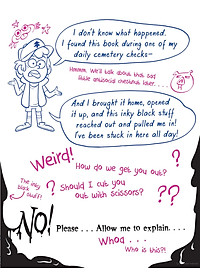 I don't know what happened.
I found this book during one of my
daily cemetery checks–
Hmmm. We'll talk about that sad
little antisocial chestnut later. . . .
And I brought it home, opened
it up, and this inky black stuff
reached out and pulled me in!
I've been stuck in here all day!
Weird!
How do we get you out?
?
The inky
black
stuff?
Should I cut you
out with scissors?
??
NO!
Please . . . Allow me to explain. . . .
Whoa . . .
Who is this?!